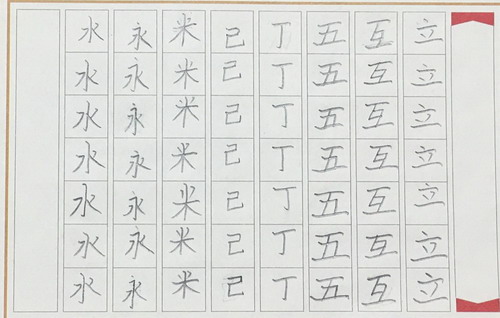 立立立立立立立
互互互互互互互
五五五五五五五
丁丁丁丁丁丁丁
己己己己己己己
米米米米米米米
永永永永永永永
水水水水水水水